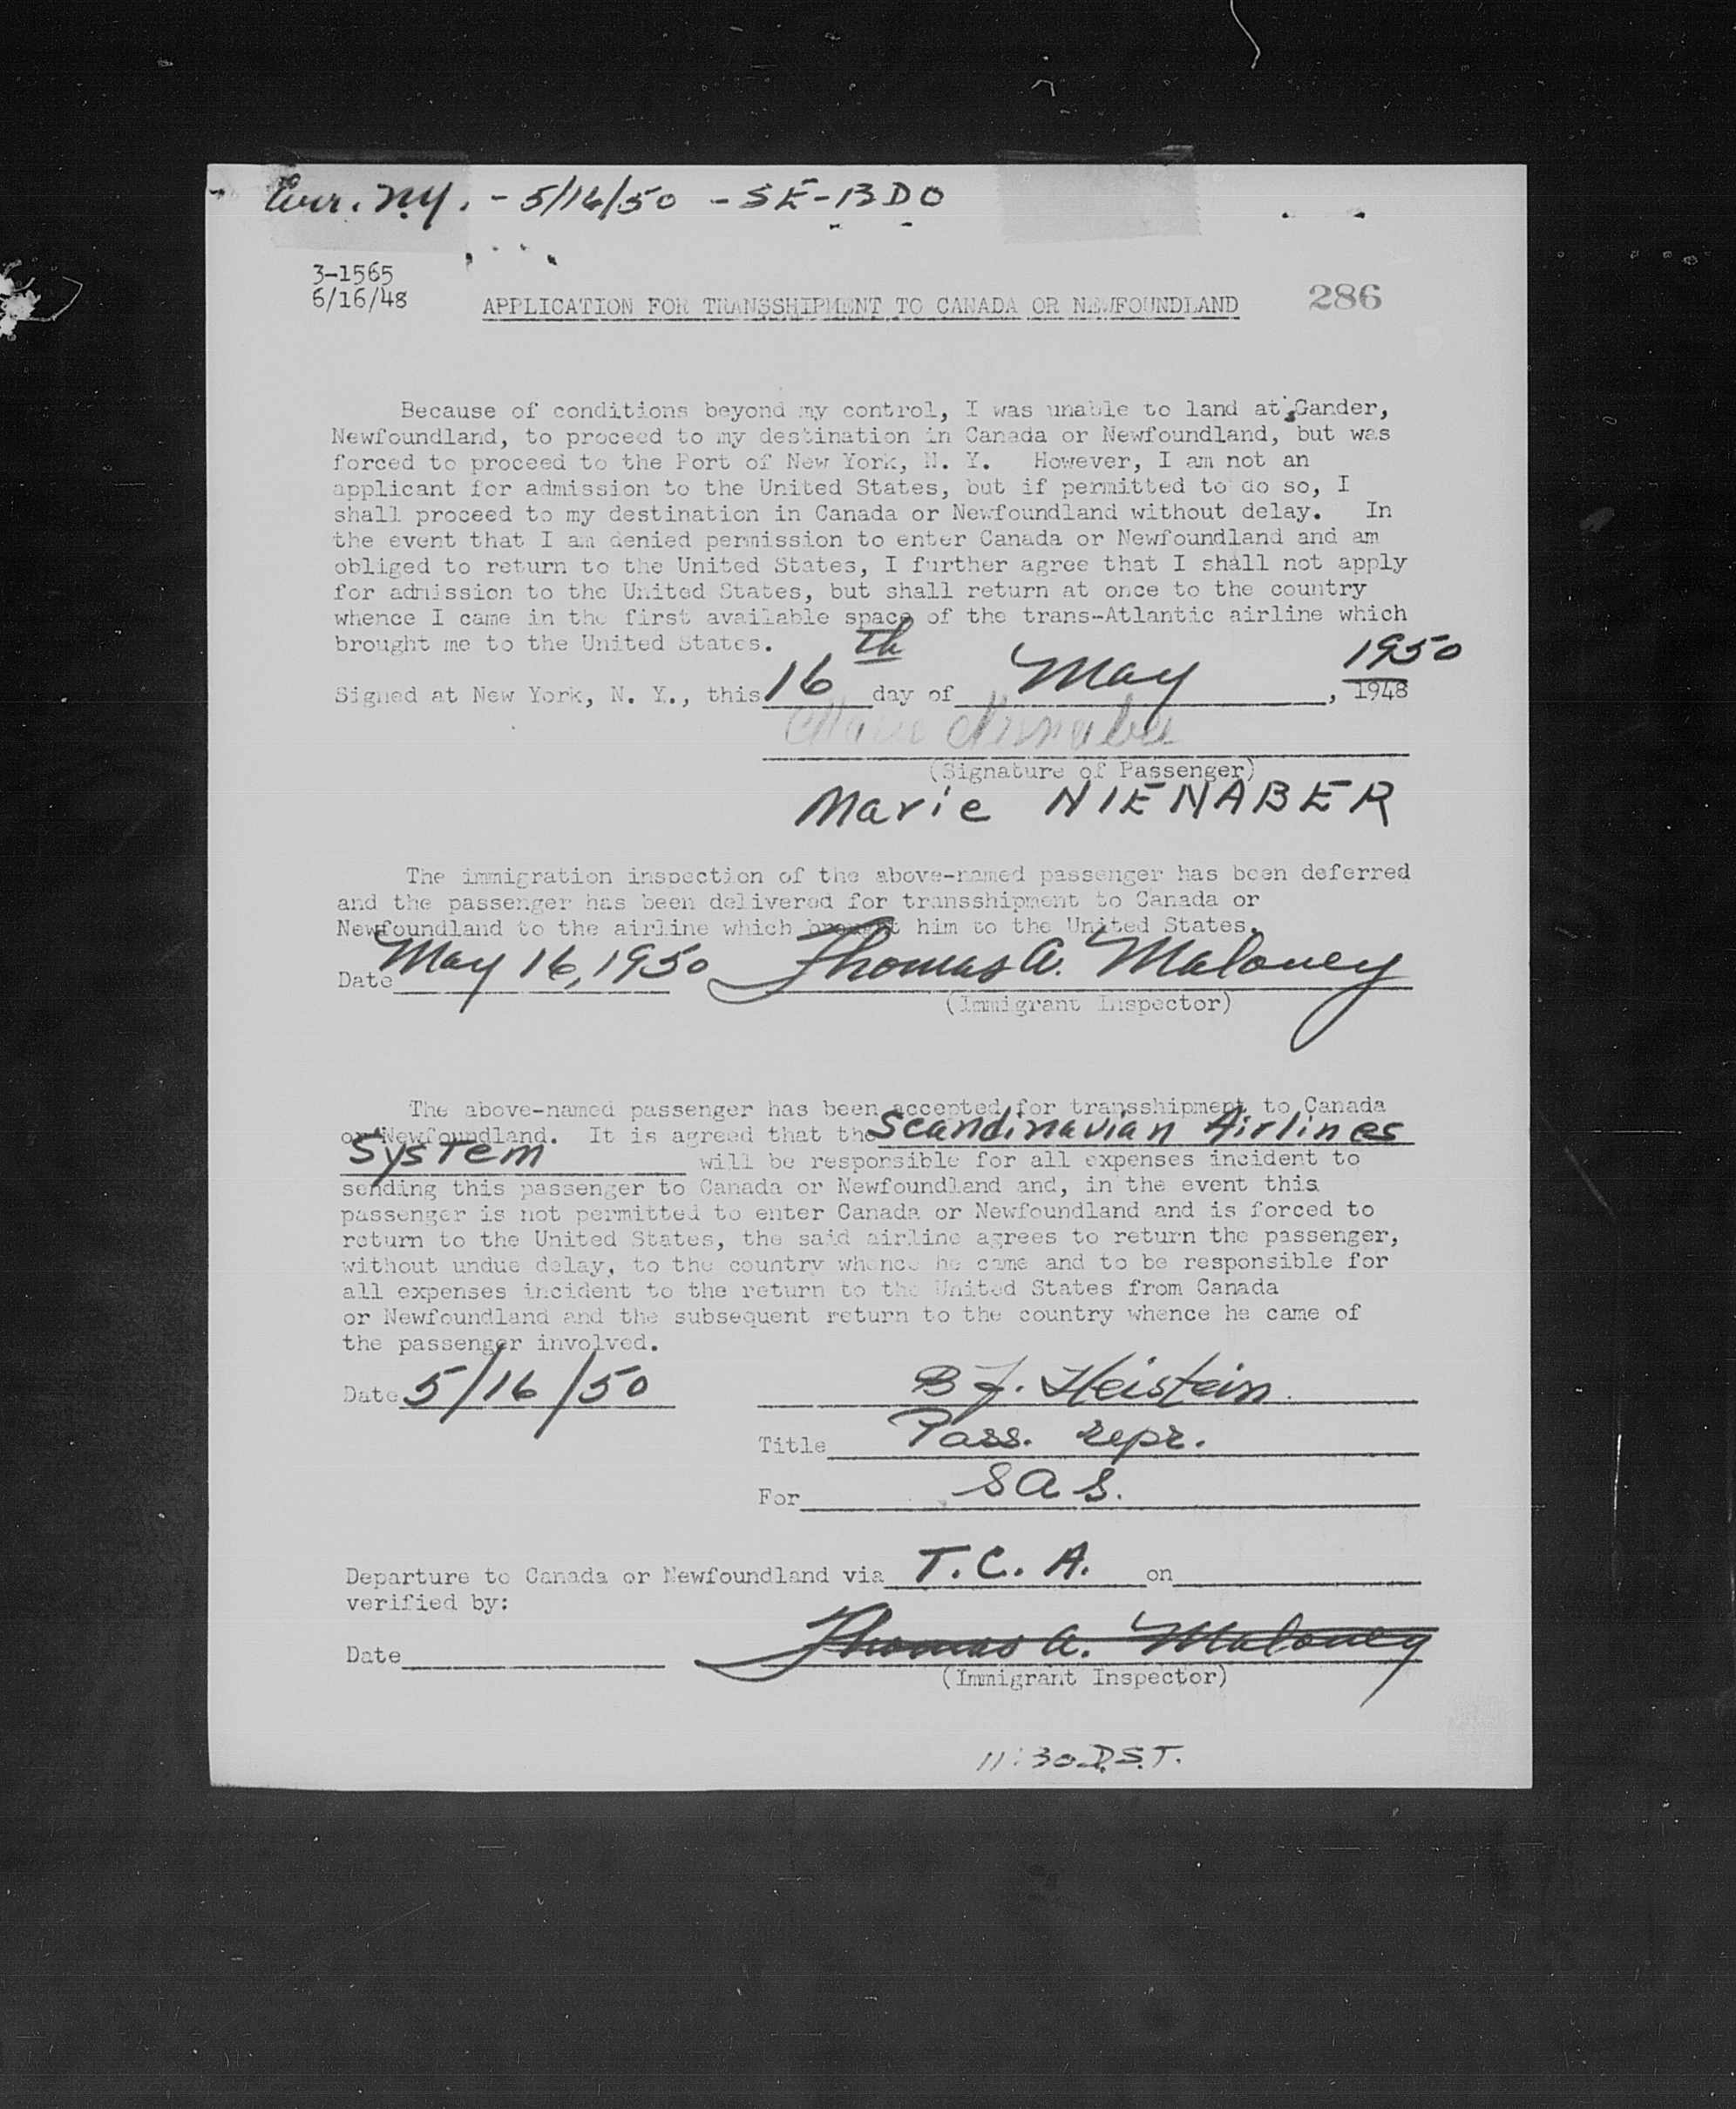 Arr. N.Y. - 5/16/50 - SE-BDO
3-1565
6/16/48
APPLICATION FOR TRANSSHIPMENT TO CANADA OR NEWFOUNDLAND 286
Because of conditions beyond my control, I was unable to land at Gander,
Newfoundland, to proceed to my destination in Canada or Newfoundland, but was
forced to proceed to the Port of New York, N. Y. However, I am not an
applicant for admission to the United States, but if permitted to do so, I
shall proceed to my destination in Canada or Newfoundland without delay. In
the event that I am denied permission to enter Canada or Newfoundland and am
obliged to return to the United States, I further agree that I shall not apply
for admission to the United States, but shall return at once to the country
whence I came in the first available space of the trans-Atlantic airline which
brought me to the United States.
Signed at New York, N. Y., this 16th day of May, 1950 1948
Marie Nienaber
(Signature of Passenger)
Marie NIENABER
The immigration inspection of the above-named passenger has been deferred
and the passenger has been delivered for transshipment to Canada or
Newfoundland to the airline which brought him to the United States.
Date May 16, 1950 Thomas A. Maloney
(Immigrant Inspector)
The above-named passenger has been accepted for transshipment to Canada
or Newfoundland. It is agreed that the Scandinavian Airlines
System will be responsible for all expenses incident to
sending this passenger to Canada or Newfoundland and, in the event this
passenger is not permitted to enter Canada or Newfoundland and is forced to
return to the United States, the said airline agrees to return the passenger,
without undue delay, to the country whence he came and to be responsible for
all expenses incident to the return to the United States from Canada
or Newfoundland and the subsequent return to the country whence he came of
the passenger involved.
Date 5/16/50 B J. Heistein
Title Pass. repr.
For SAS.
Departure to Canada or Newfoundland via T.C.A. on
verified by:
Date Thomas A. Maloney
(Immigrant Inspector)
11:30 D.S.T.